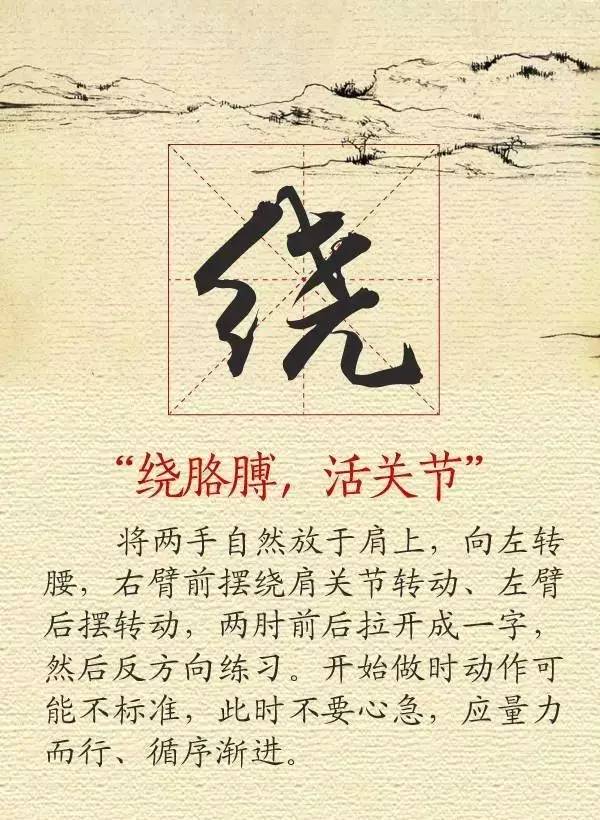 绕
“绕胳膊，活关节”
将两手自然放于肩上，向左转
腰，右臂前摆绕肩关节转动、左臂
后摆转动，两肘前后拉开成一字，
然后反方向练习。开始做时动作可
能不标准，此时不要心急，应量力
而行、循序渐进。